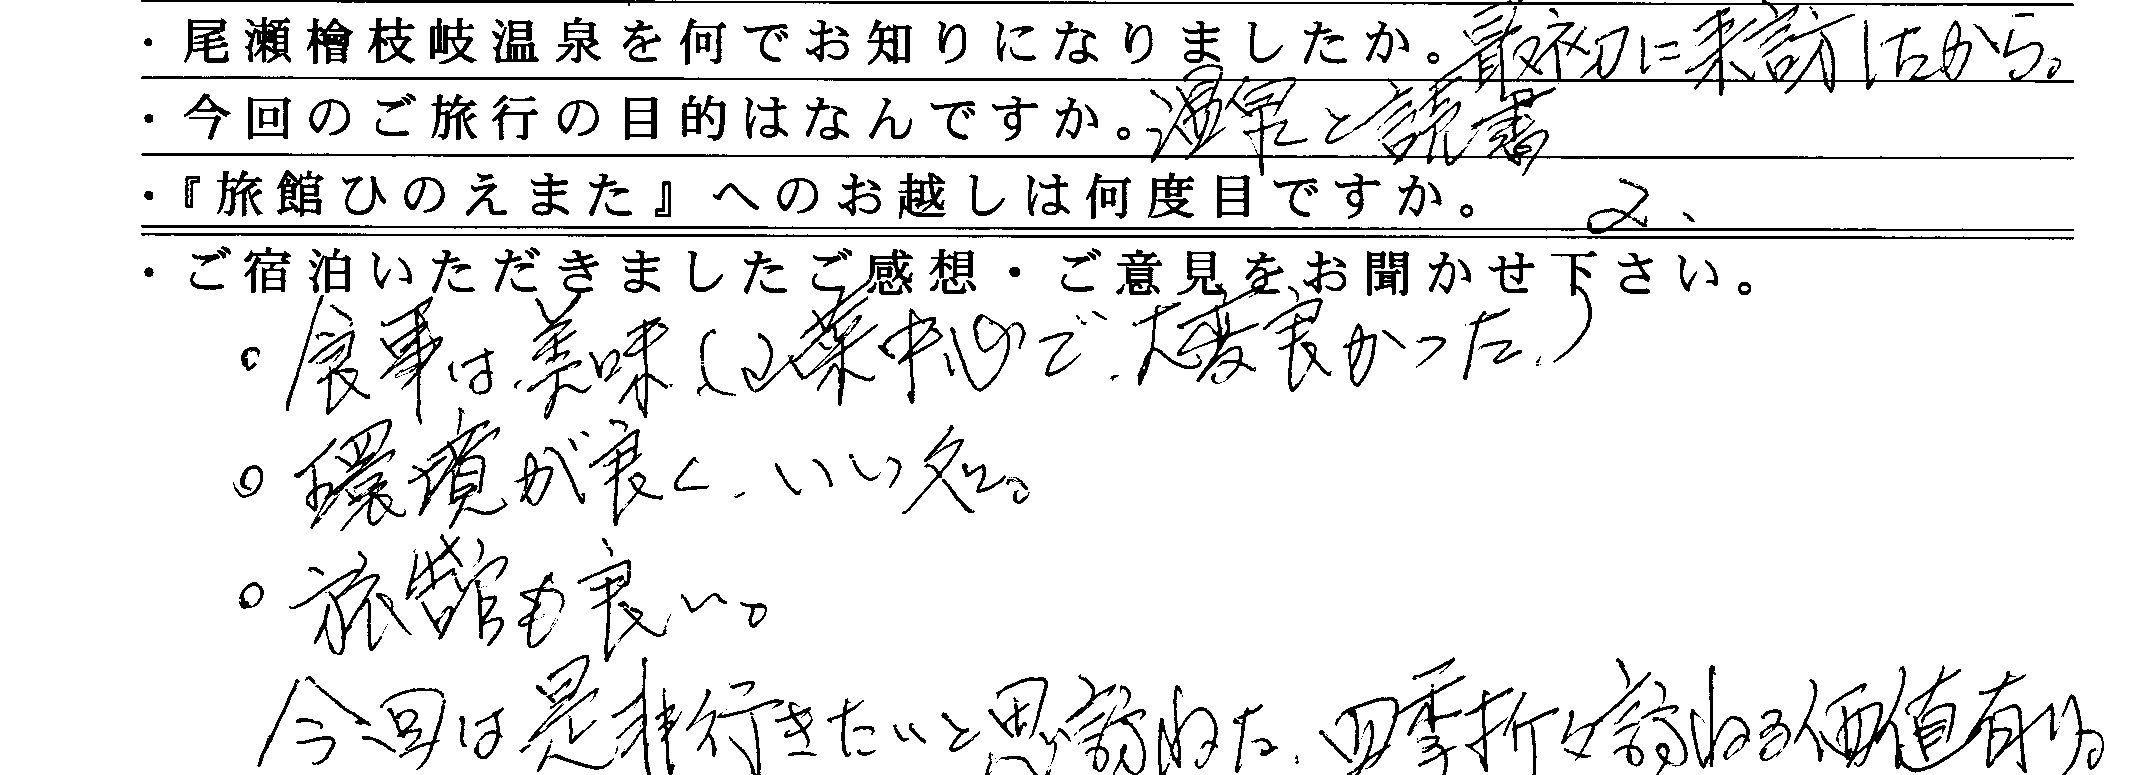 ・尾瀬檜枝岐温泉を何でお知りになりましたか。最初に来訪したから。
・今回のご旅行の目的はなんですか。温泉と読書
・『旅館ひのえまた』へのお越しは何度目ですか。 2、
・ご宿泊いただきましたご感想・ご意見をお聞かせ下さい。
○食事は美味(山菜中心で、大変良かった。)
○環境が良く、いい名。
○旅館も良い。
今回は是非行きたいと思い訪ねた、四季折々訪ねる価値有り。